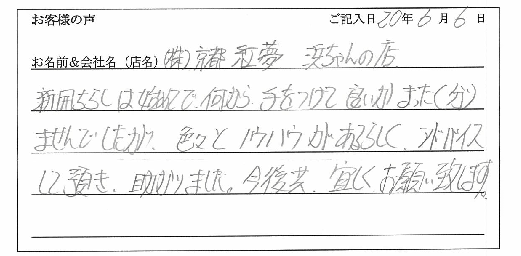 お客様の声 ご記入日20年6月6日
お名前&会社名(店名) (株)京都 和夢 浜ちゃんの店
新聞ちらしは始めてで、何から手をつけて良いかまったく分り
ませんでしたが、色々とノウハウがあるらしく、アドバイス
して頂き、助かりました。今後共、宜しくお願い致します。